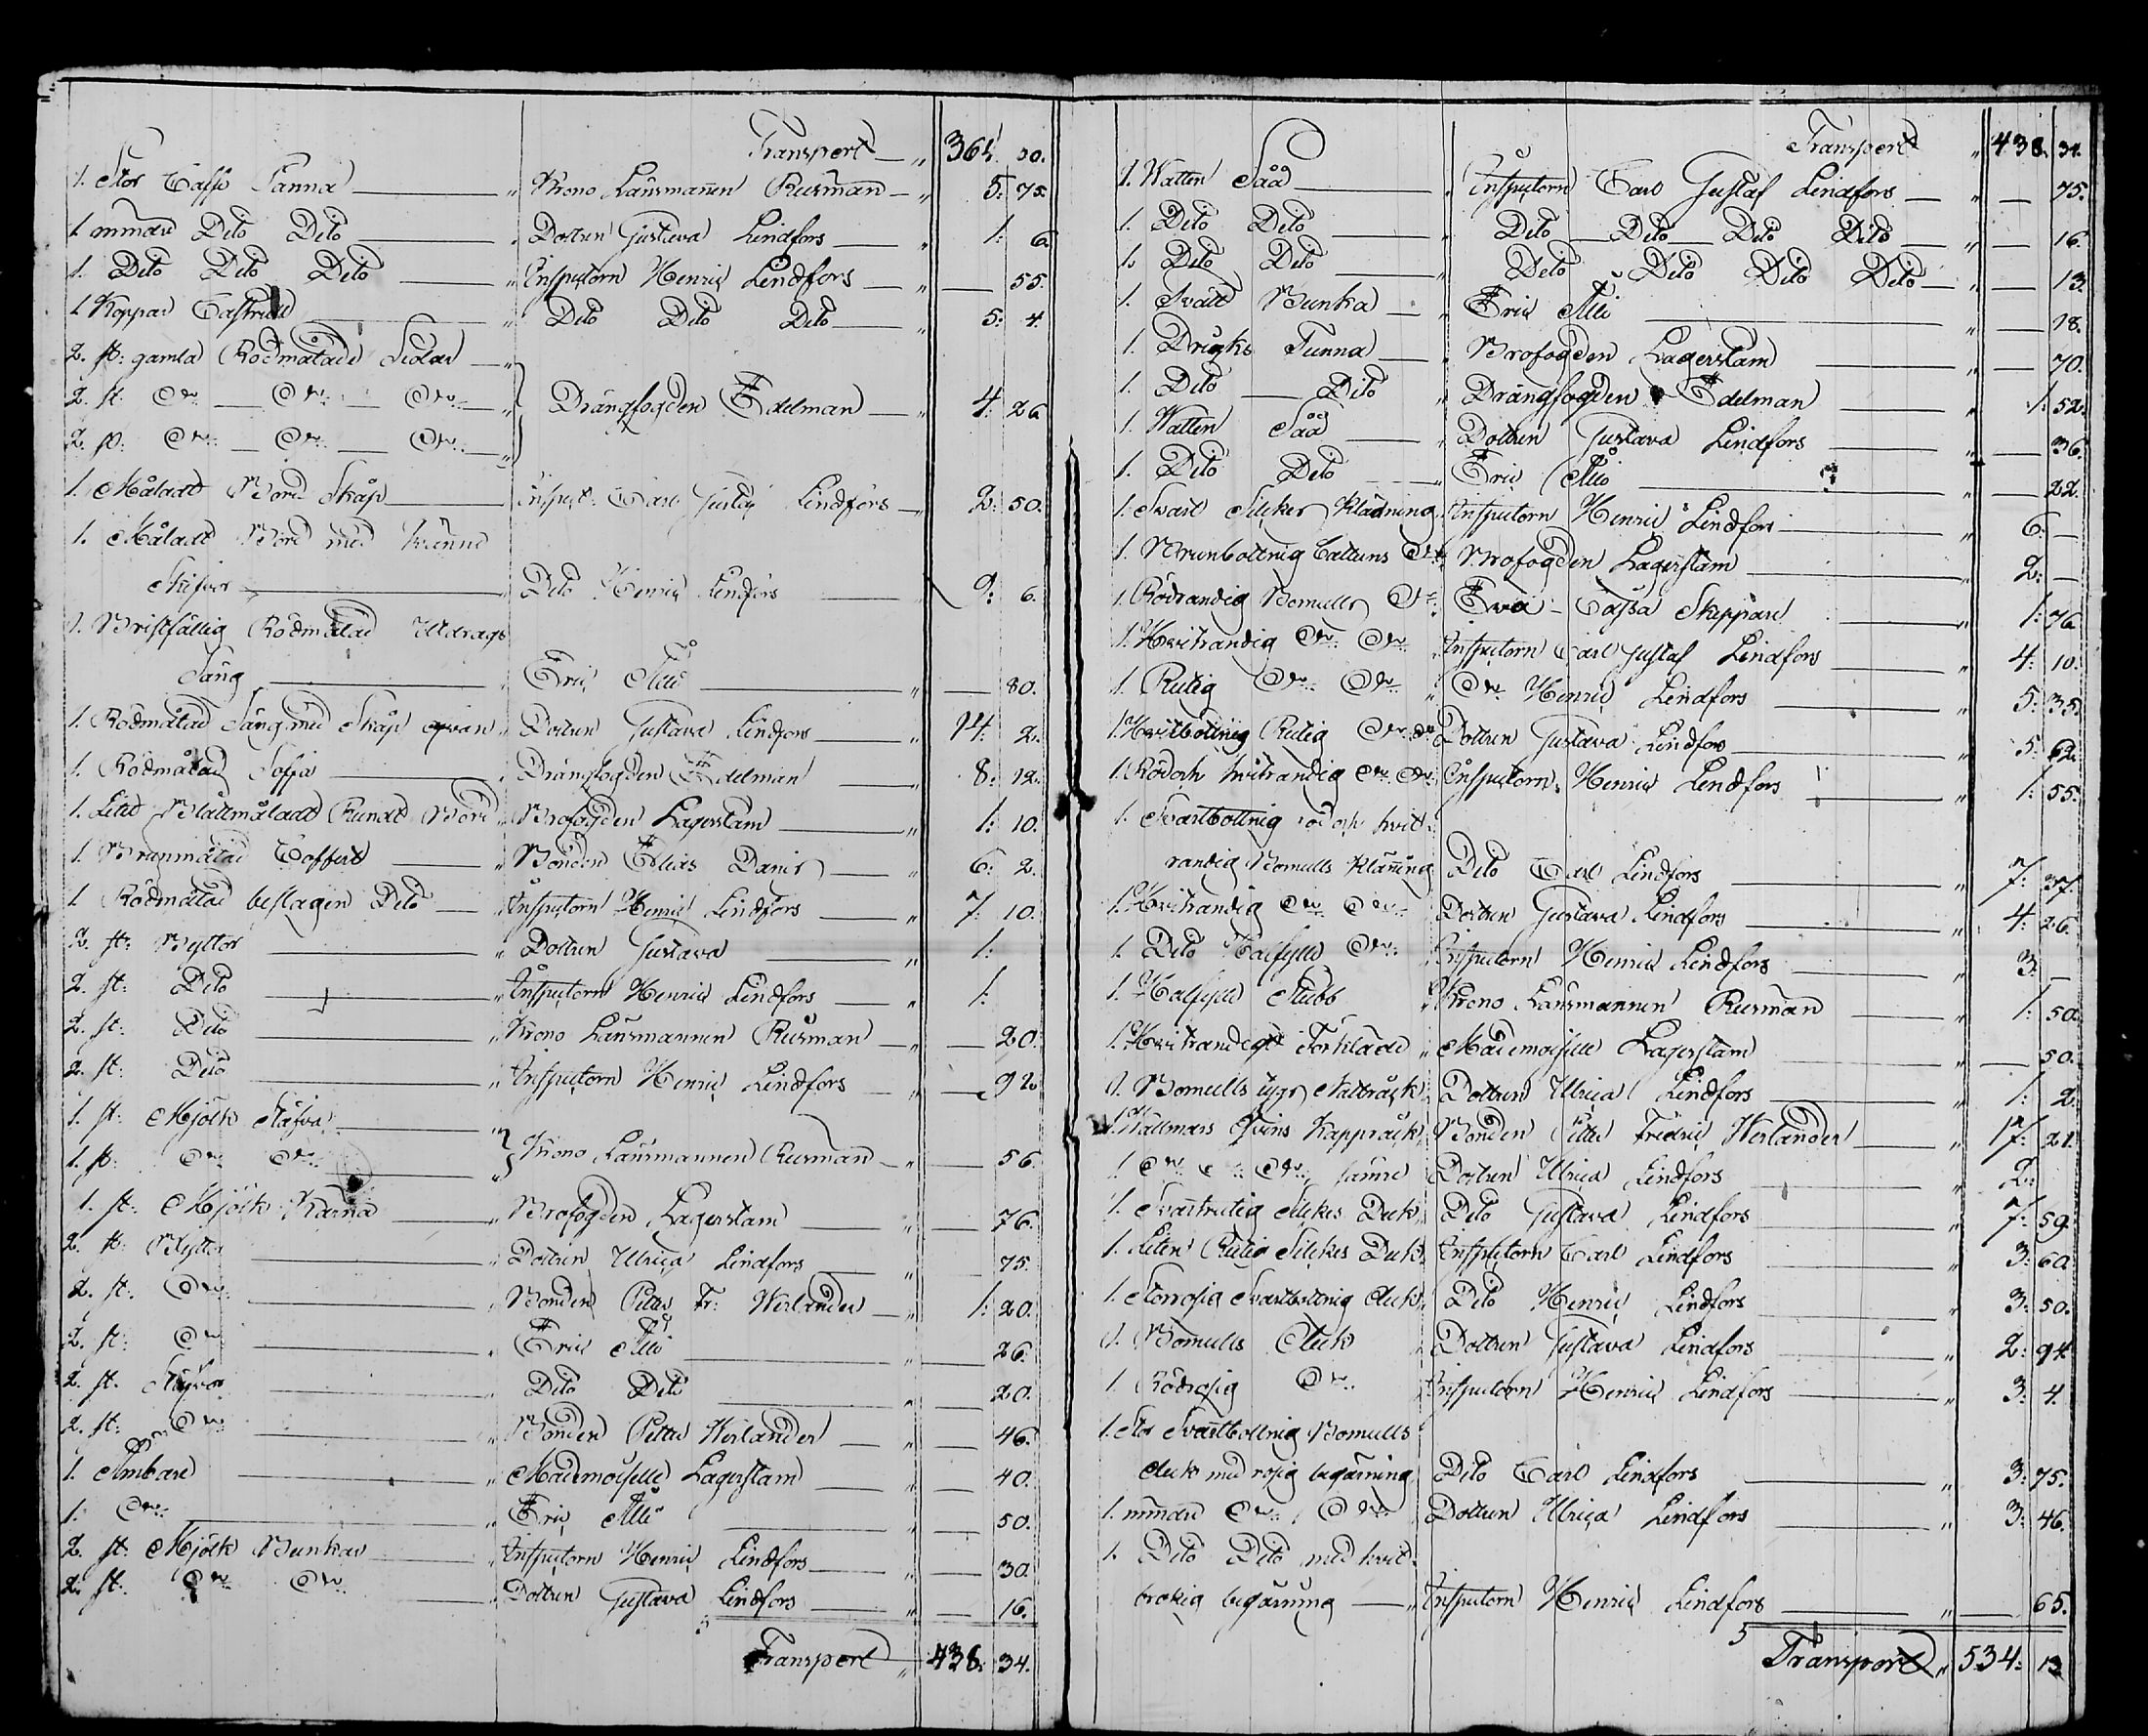 Transport „ 364. 30.
1. Stor Caffe Panna „ Krono Länsmannen Rusman „ 5: 75.
1 mindre Dito Dito „ Dottren Gustava Lindfors „ 1: 6.
1. Dito Dito Dito „ Inspectorn Henric Lindfors „ — 55.
1 Koppar Castrull „ Dito Dito Dito „ 5: 4.
2. st: gamla Rödmålade Stolar „
2. st: Do Do Do „ Drängfogden Edelman „ 4: 26
2. st: Do Do Do „
1. Måladt Bord Skåp Inspect: Carl Gustaf Lindfors 2: 50.
1. Måladt Bord med tvänne
Skifvor „ Dito Henric Lindfors 9: 6.
1. Bristfällig Rödmålad Utdrags
Säng „ Eric Alli „ — 80.
1. Rödmålad Säng med Skåp ofvan „ Dottren Gustava Lindfors „ 14: 2.
1. Rödmålad Soffa „ Drängfogden Edelman „ 8: 12.
1. Litet Blåttmåladt Rundt Bord Brofogden Lagerstam „ 1: 10.
1. Brunmålad Coffert „ Bonden Elias Danis „ 6: 2.
1 Rödmålad beslagen Dito „ Inspectorn Henric Lindfors „ 7: 10.
2. st: Byttor „ Dottren Gustava „ 1:
2. st: Dito „ Inspectorn Henric Lindfors „ 1:
2. st: Dito „ Krono Länsmannen Rusman „ — 20.
2. st: Dito „ Inspectorn Henric Lindfors „ — 92
1. st: Mjölk Stäfva „
1. st: Do Do „ Krono Länsmannen Rusman „ — 56.
1. st: Mjölk Kärna „ Brofogden Lagerstam „ — 76.
2. st: Byttor „ Dottren Ulrica Lindfors „ — 75.
2. st: Do „ Bonden Petter Fr: Werlander „ 1: 20.
2. st: Do „ Eric Alli „ — 26.
2. st. Stäfvor „ Dito Dito „ — 20.
2. st: Do „ Bonden Petter Werlander „ — 46.
1. Ämbare „ Mademoiselle Lagerstam „ — 40.
1. Do „ Eric Alli „ — 50.
2. st: Mjölk Bunkar „ Inspectorn Henric Lindfors „ — 30.
2. st: Do Do „ Dottren Gustava Lindfors „ — 16.
Transport „ 438. 34.
Transport „ 438. 34.
1. Watten Såå „ Inspectorn Carl Gustaf Lindfors „ — 75.
1. Dito Dito „ Dito Dito Dito Dito „ — 16.
1. Dito Dito „ Dito Dito Dito Dito „ — 13.
1. Svatt Bunka „ Eric Alli „ — 18.
1. Dricks Tunna „ Brofogden Lagerstam „ — 70.
1. Dito Dito „ Drängfogden Edelman „ 1: 52.
1. Watten Såå „ Dottren Gustava Lindfors „ — 36.
1. Dito Dito „ Eric Alli „ — 22.
1. Svart Silckes Klädning „ Inspectorn Henric Lindfors „ 6. —
1. Brunbottnig Cattuns Do Brofogden Lagerstam „ 2: —
1. Rödrandig Bomulls Do „ Eva Cajsa Skeppare „ 1: 76
1. Hvitrandig Do Do „ Inspectorn Carl Gustaf Lindfors „ 4: 10.
1. Rutig Do Do „ Do Henric Lindfors „ 5: 35.
1. Hvitbottnig Rutig Do Do Dottren Gustava Lindfors „ 5. 62.
1. Röd och hvitrandig Do Do Inspectorn Henric Lindfors „ 1: 55.
1. Svartbottnig röd och hvit
randig Bomulls Klänning Dito Carl Lindfors „ 7: 37.
1. Hvitrandig Do Do Dottren Gustava Lindfors „ 4: 26.
1. Dito Halfsylle Do Inspectorn Henric Lindfors „ 3. —
1. Halfsylle Stubb „ Krono Länsmannen Rusman „ 1: 50.
1. Hvitrandigt Förkläde „ Mademoiselle Lagerstam „ — 50.
1. Bomulls tygs Nattråck Dottren Ulrica Lindfors „ 1: 2.
1. Wallmars Qvins Kappråck Bonden Petter Fredric Werlander „ 17: 21.
1. Do Do Do sämre Dottren Ulrica Lindfors „ 2:
1. Svartrutig Silckes Duk Dito Gustava Lindfors „ 7: 59
1. Liten Rutig Silckes Duk Inspectorn Carl Lindfors „ 3: 60.
1. Storrosig Svartbottnig Duk Dito Henric Lindfors „ 3: 50.
1. Bomulls Duk „ Dottren Gustava Lindfors „ 2: 94.
1. Rödrosig Do „ Inspectorn Henric Lindfors „ 3: 4.
1. Stor Svartbottnig Bomulls
duk med rosig begärning Dito Carl Lindfors „ 3: 75.
1. mindre Do Do Dottren Ulrica Lindfors „ 3: 46.
1. Dito Dito med hvit
brokig begärning „ Inspectorn Henric Lindfors „ — 65.
Transport „ 534. 13